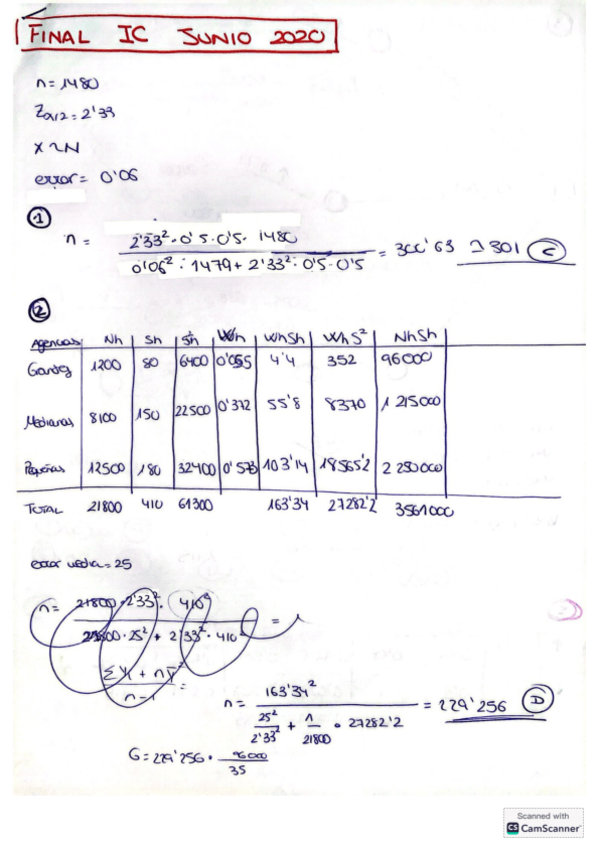 FINAL IC JUNIO 2020
n = 1480
Zα/2 = 2'33
X ~ N
error = 0'06
①
n = 2'33² · 0'5 · 0'5 · 1480 / 0'06² · 1479 + 2'33² · 0'5 · 0'5 = 300'63 301 C
②
Agencias Nh Sh S²h Wh WhSh WhS² NhSh
Grandes 1200 80 6400 0'055 4'4 352 96000
Medianas 8100 150 22500 0'372 55'8 8370 1 215000
Pequeñas 12500 180 32400 0'573 103'14 18565'2 2 250000
TOTAL 21800 410 61300 163'34 27282'2 3561000
error media = 25
n = 21800 · 2'33² · 410² / 21800 · 25² + 2'33² · 410² =
n - 1 =
n = 163'34² / 25² / 2'33² + 1 / 21800 · 27282'2 = 229'256 D
G = 229'256 · 96000 / 35
Scanned with
CS CamScanner